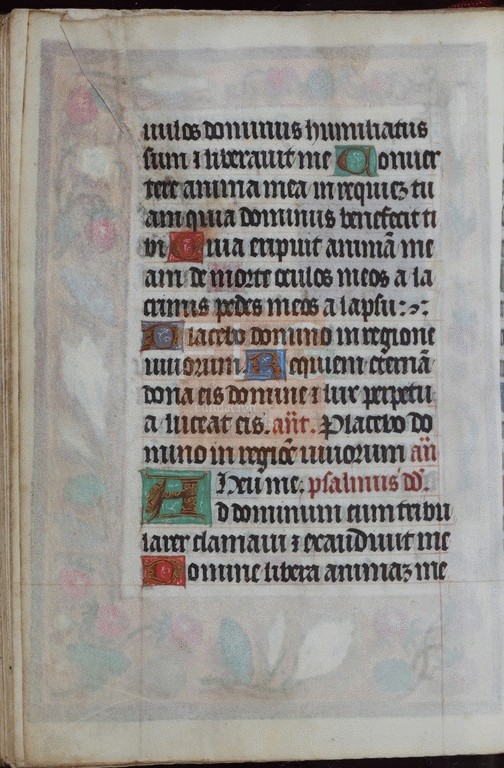 uulos dominus humiliatus
sum ⁊ liberauit me Conuer
tere anima mea in requiez tu
am quia dominus benefecit ti
bi Quia eripuit animā me
am de morte oculos meos a la
crimis pedes meos a lapsu
Placebo domino in regione
uiuorum Requiem eternā
dona eis domine ⁊ lux perpetu
a luceat eis. añt. Placebo do
mino in regiōe uiuorum añ
Heu me. psalmus dō.
Ad dominum cum tribu
larer clamaui ⁊ exaudiuit me
Domine libera animaz me